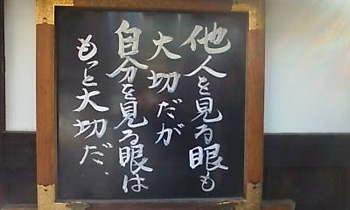 他人を見る眼も
大切だが
自分を見る眼は
もっと大切だ、